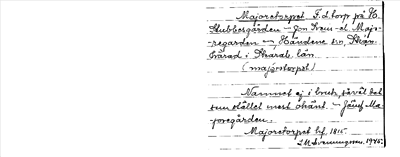 Majorstorpet F. d. torp på St.
Stubbegården – Jon Svens-el. Majors-
regården –, Händene sn, Skån-
härad i Skarab. län
(majorstorpet)
Namnet ej i bruk, såväl det
som stället mest okänt. – Jämf Ma-
joregården.
Majorstorpet bif. 1815.
1945.